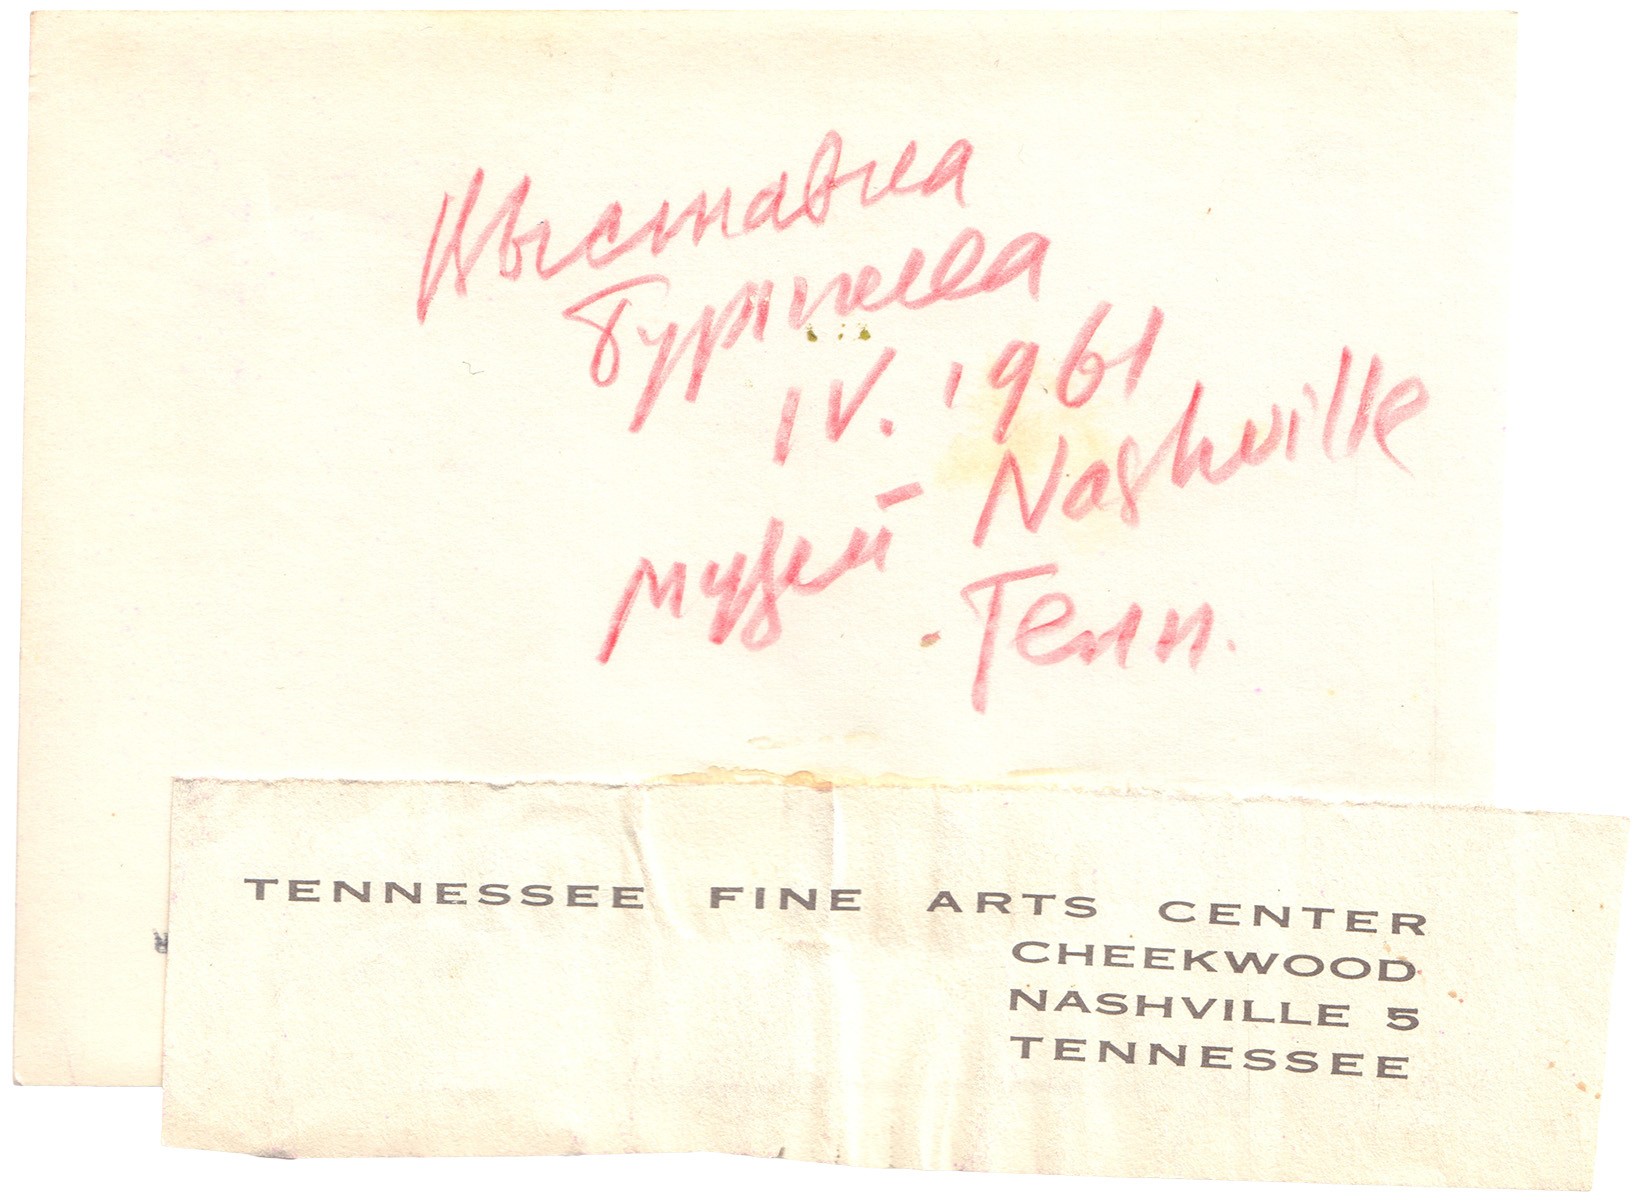 Выставка
Бурлюка
IV. 1961
музей Nashville
Тенн.
TENNESSEE FINE ARTS CENTER
CHEEKWOOD
NASHVILLE 5
TENNESSEE